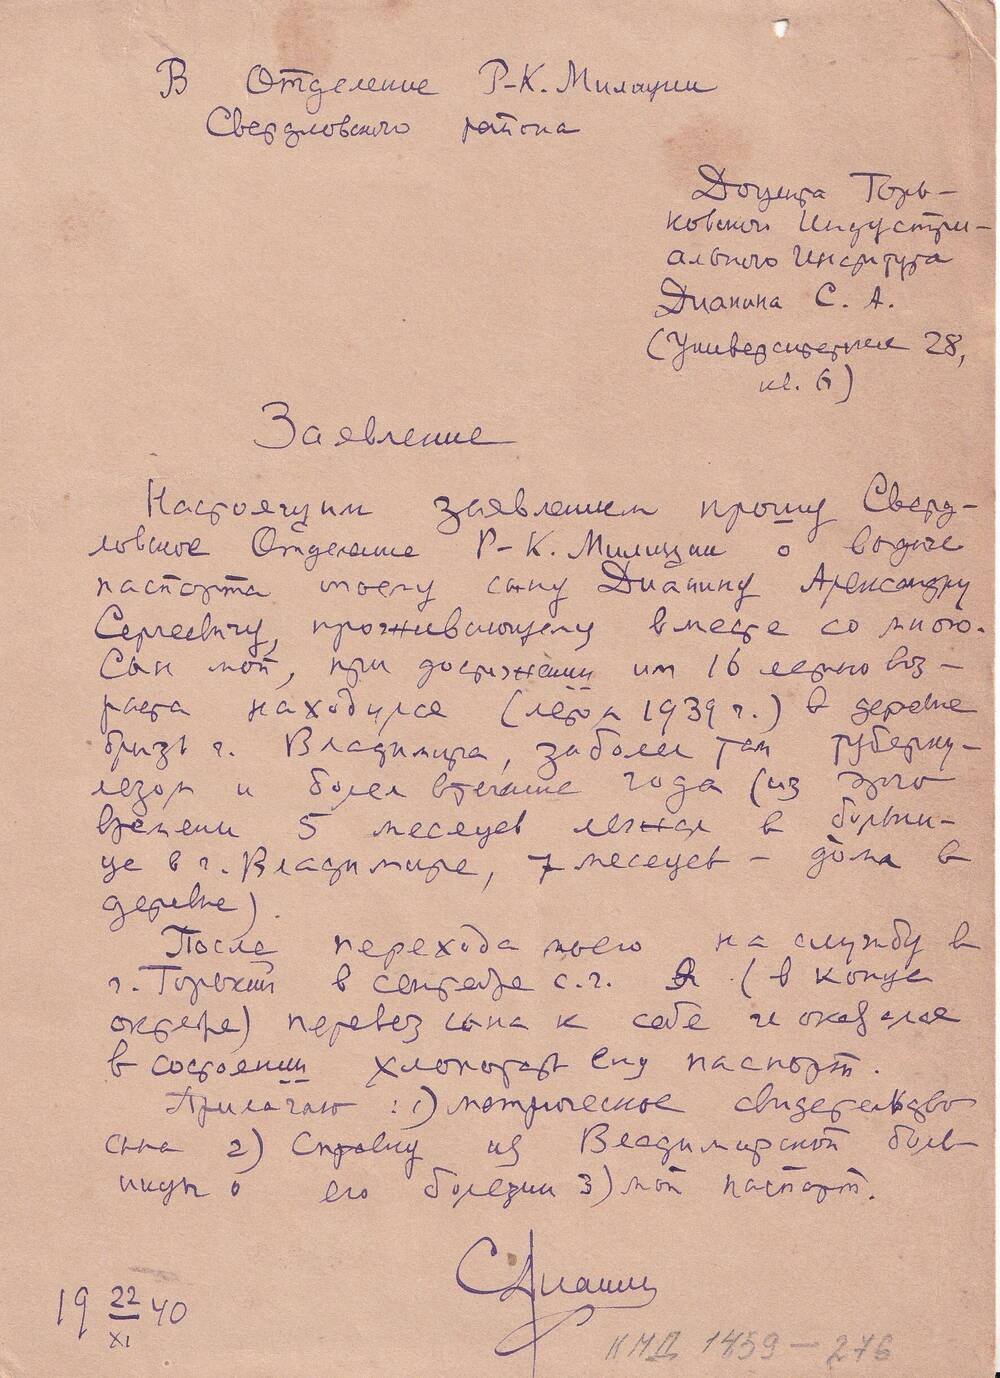 В Отделение Р-К. Милиции
Свердловского района
Доцента Горь-
ковского Индустри-
ального Института
Дианина С. А.
(Университетская 28,
кв. 6)
Заявление
Настоящим заявлением прошу Сверд-
ловское Отделение Р-К. Милиции о выдаче
паспорта моему сыну Дианину Александру
Сергеевичу, проживающему вместе со мною.
Сын мой, при достижении им 16 летнего воз-
раста находился (летом 1939 г.) в деревне
близь г. Владимира, заболел там туберку-
лезом и болел втечение года (из этого
времени 5 месяцев лежал в больни-
це в г. Владимире, 7 месяцев - дома в
деревне).
После перехода моего на службу в
г. Горький в сентябре с.г. я (в конце
октября) перевез сына к себе и оказался
в состоянии хлопотать ему паспорт.
Прилагаю: 1) метрическое свидетельство
сына 2) Справку из Владимирской боль-
ницы о его болезни 3) мой паспорт.
СДианин
19 22/XI 40
КМД 1459-276